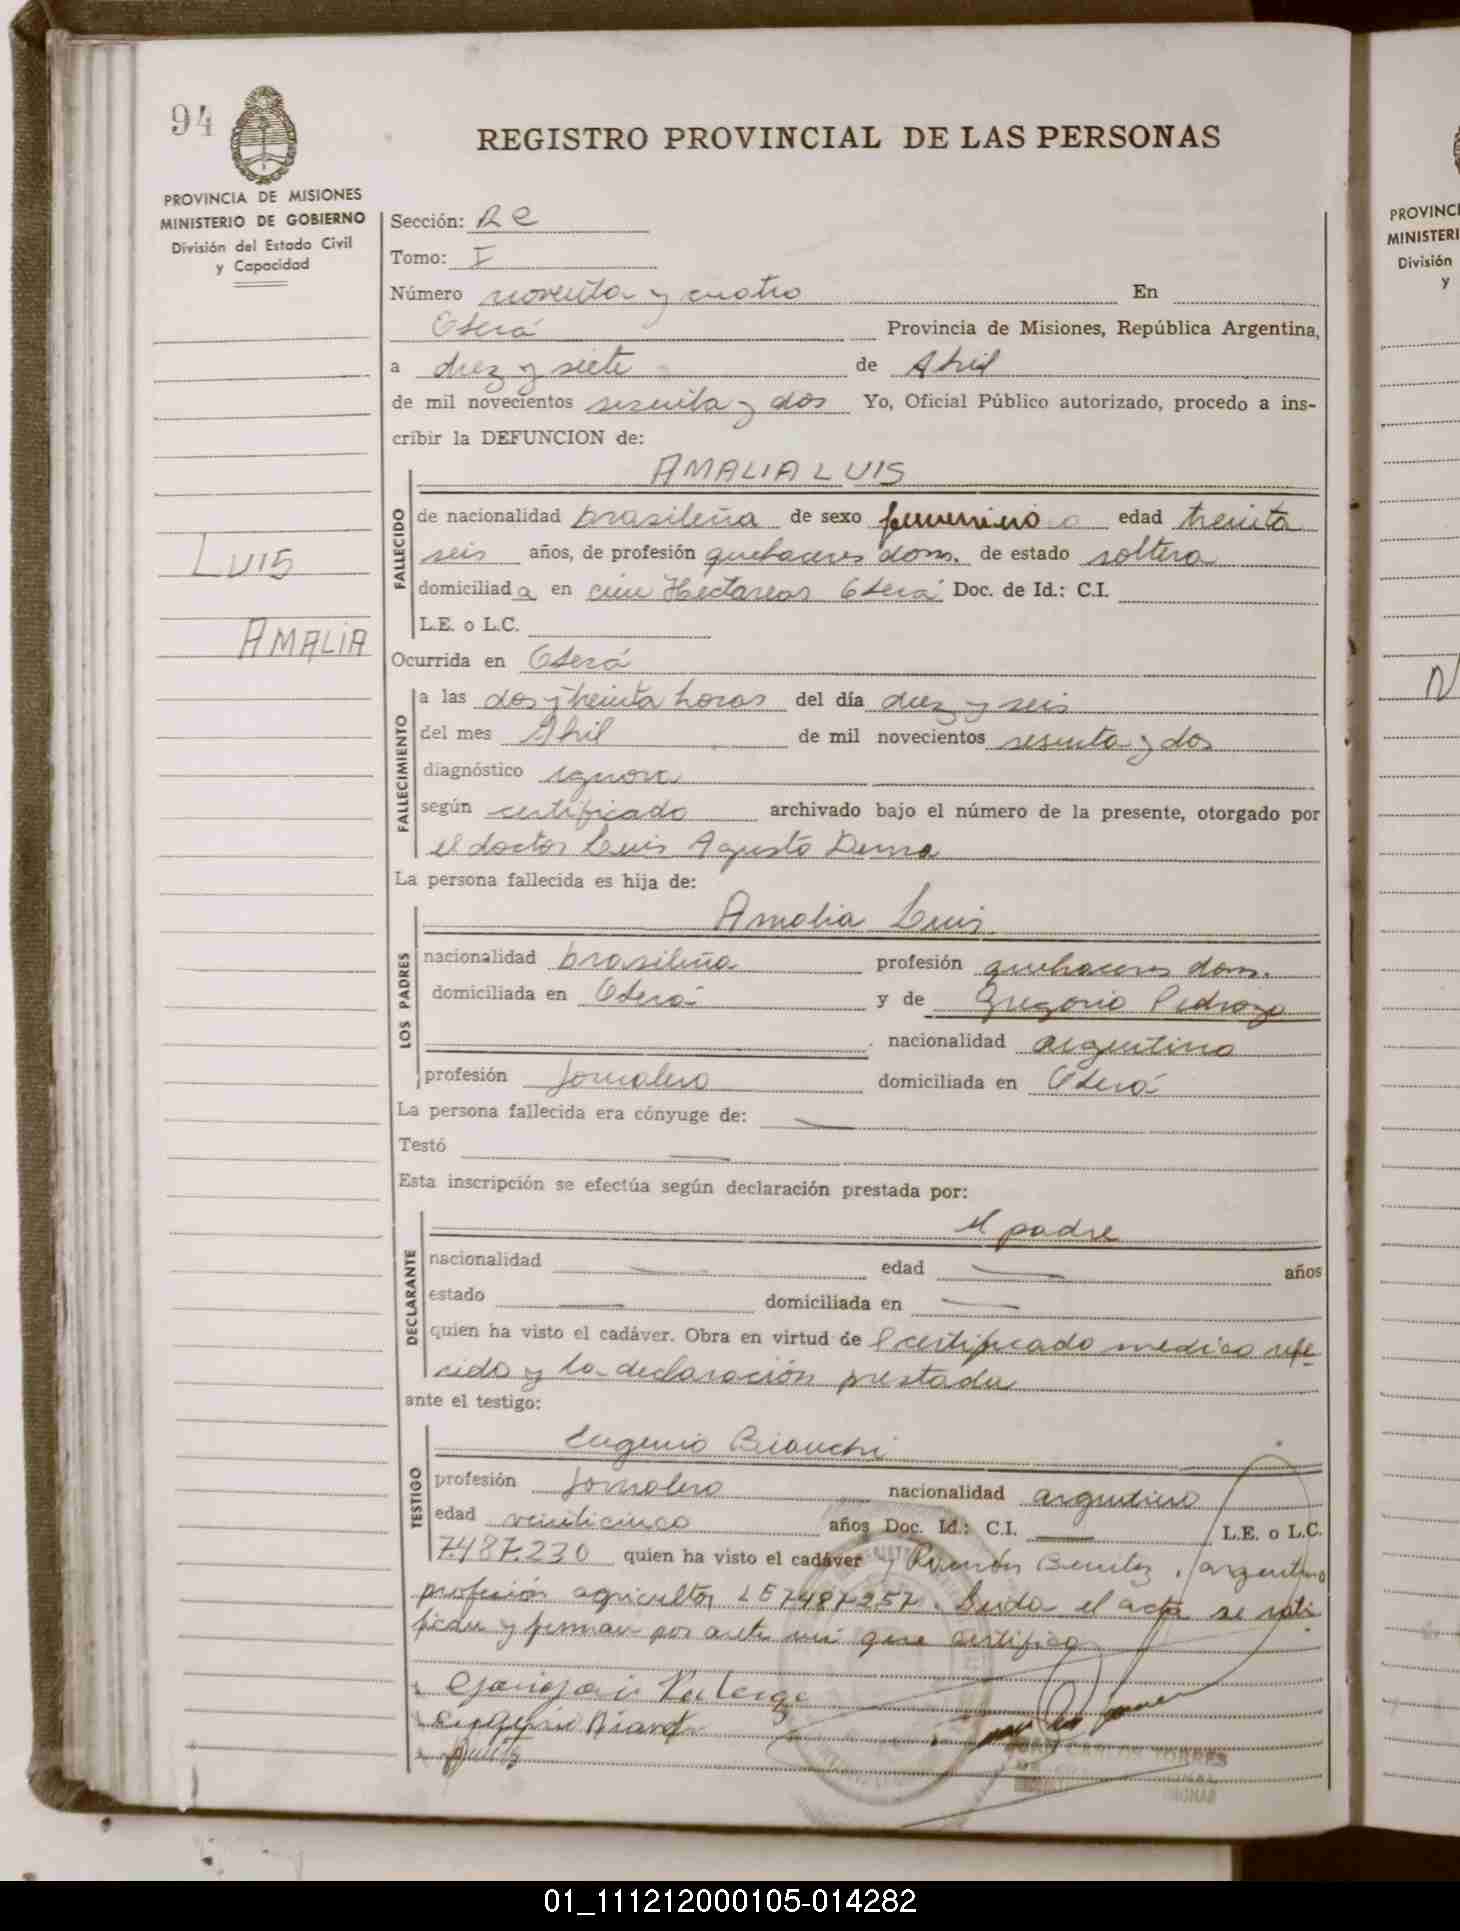 94
REGISTRO PROVINCIAL DE LAS PERSONAS
PROVINCIA DE MISIONES
MINISTERIO DE GOBIERNO
División del Estado Civil
y Capacidad
Sección:
Tomo: I
Número noventa y cuatro En
Oberá Provincia de Misiones, República Argentina,
a diez y siete de Abril
de mil novecientos sesenta y dos Yo, Oficial Público autorizado, procedo a ins-
cribir la DEFUNCION de:
AMALIA LUIS
LUIS
AMALIA
FALLECIDO
de nacionalidad brasileña de sexo femenino edad treinta
seis años, de profesión quehaceres dom. de estado soltera
domiciliada en cien Hectareas Oberá Doc. de Id.: C.I.
L.E. o L.C.
Ocurrida en Oberá
FALLECIMIENTO
a las dos y treinta horas del día diez y seis
del mes Abril de mil novecientos sesenta y dos
diagnóstico ignora
según certificado archivado bajo el número de la presente, otorgado por
el doctor Luis Agusto
La persona fallecida es hija de:
LOS PADRES
Amalia Luis
nacionalidad brasileña profesión quehaceres dom.
domiciliada en Oberá y de Gregorio Pedrozo
nacionalidad argentino
profesión Jornalero domiciliada en Oberá
La persona fallecida era cónyuge de: —
Testó —
Esta inscripción se efectúa según declaración prestada por:
DECLARANTE
el padre
nacionalidad — edad — años
estado — domiciliada en —
quien ha visto el cadáver. Obra en virtud de l certificado medico refe-
rido y la declaración prestada
ante el testigo:
TESTIGO
Eugenio Bianchi
profesión Jornalero nacionalidad argentino
edad veinticinco años Doc. Id.: C.I. — L.E. o L.C.
7.487.230 quien ha visto el cadáver y Ramón Benitez, argentino
profesión agricultor LE 7487257. Leida el acta se rati
fican y firman por ante mi que certifico
JUAN CARLOS TORRES
PROVINCI
MINISTERI
División
y
N
01_111212000105-014282